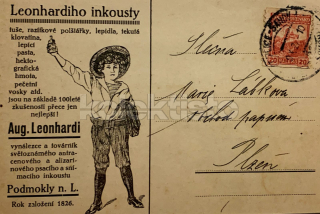 Leonhardiho inkousty
tuše, razítkové polštářky, lepidla, tekutá
klovatina,
lepící
pasta,
hekto-
grafická
hmota,
pečetní
vosky atd.
jsou na základě 100leté
zkušenosti přece jen
nejlepší!
Aug. Leonhardi
vynálezce a továrník
světoznámého antra-
cenového a alizari-
nového psacího a sní-
macího inkoustu
Podmokly n. L.
Rok založení 1826.
Slečna
Marie
Obchod papírní
Plzeň